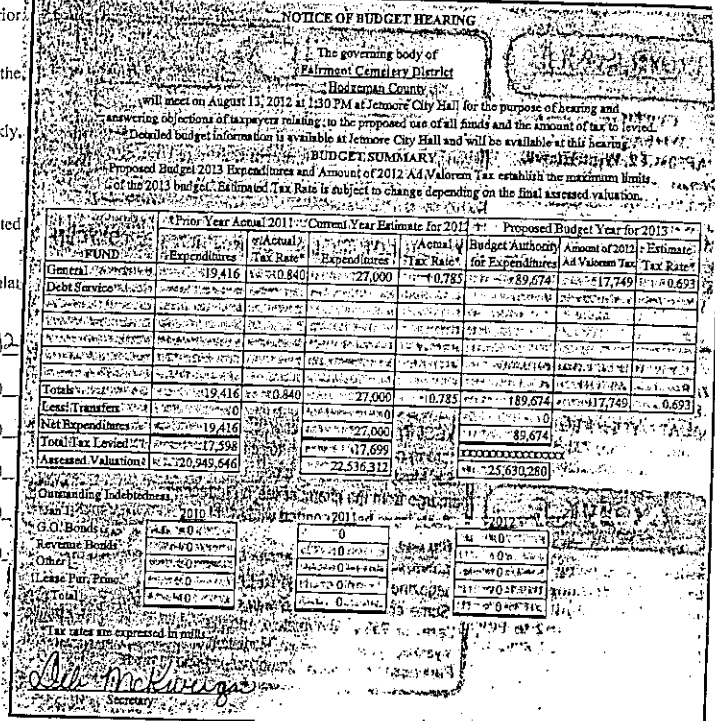 NOTICE OF BUDGET HEARING
The governing body of
Fairmont Cemetery District
Hodgeman County
will meet on August 13, 2012 at 1:30 PM at Jetmore City Hall for the purpose of hearing and
answering objections of taxpayers relating to the proposed use of all funds and the amount of tax to levied.
Detailed budget information is available at Jetmore City Hall and will be available at this hearing.
BUDGET SUMMARY
Proposed Budget 2013 Expenditures and Amount of 2012 Ad Valorem Tax establish the maximum limits
of the 2013 budget. Estimated Tax Rate is subject to change depending on the final assessed valuation.
Prior Year Actual 2011 Current Year Estimate for 2012 Proposed Budget Year for 2013
FUND Expenditures Actual Tax Rate* Expenditures Actual Tax Rate* Budget Authority for Expenditures Amount of 2012 Ad Valorem Tax Estimate Tax Rate*
General 19,416 0.840 27,000 0.785 89,674 17,749 0.693
Debt Service
Totals 19,416 0.840 27,000 0.785 89,674 17,749 0.693
Less: Transfers 0 0 0
Net Expenditures 19,416 27,000 89,674
Total Tax Levied 17,598 17,699 xxxxxxxxxxxx
Assessed Valuation 20,949,646 22,536,312 25,630,280
Outstanding Indebtedness,
Jan 1, 2010 2011 2012
G.O. Bonds 0 0 0
Revenue Bonds 0 0 0
Other 0 0 0
Lease Pur. Princ. 0 0 0
Total 0 0 0
*Tax rates are expressed in mills
Secretary